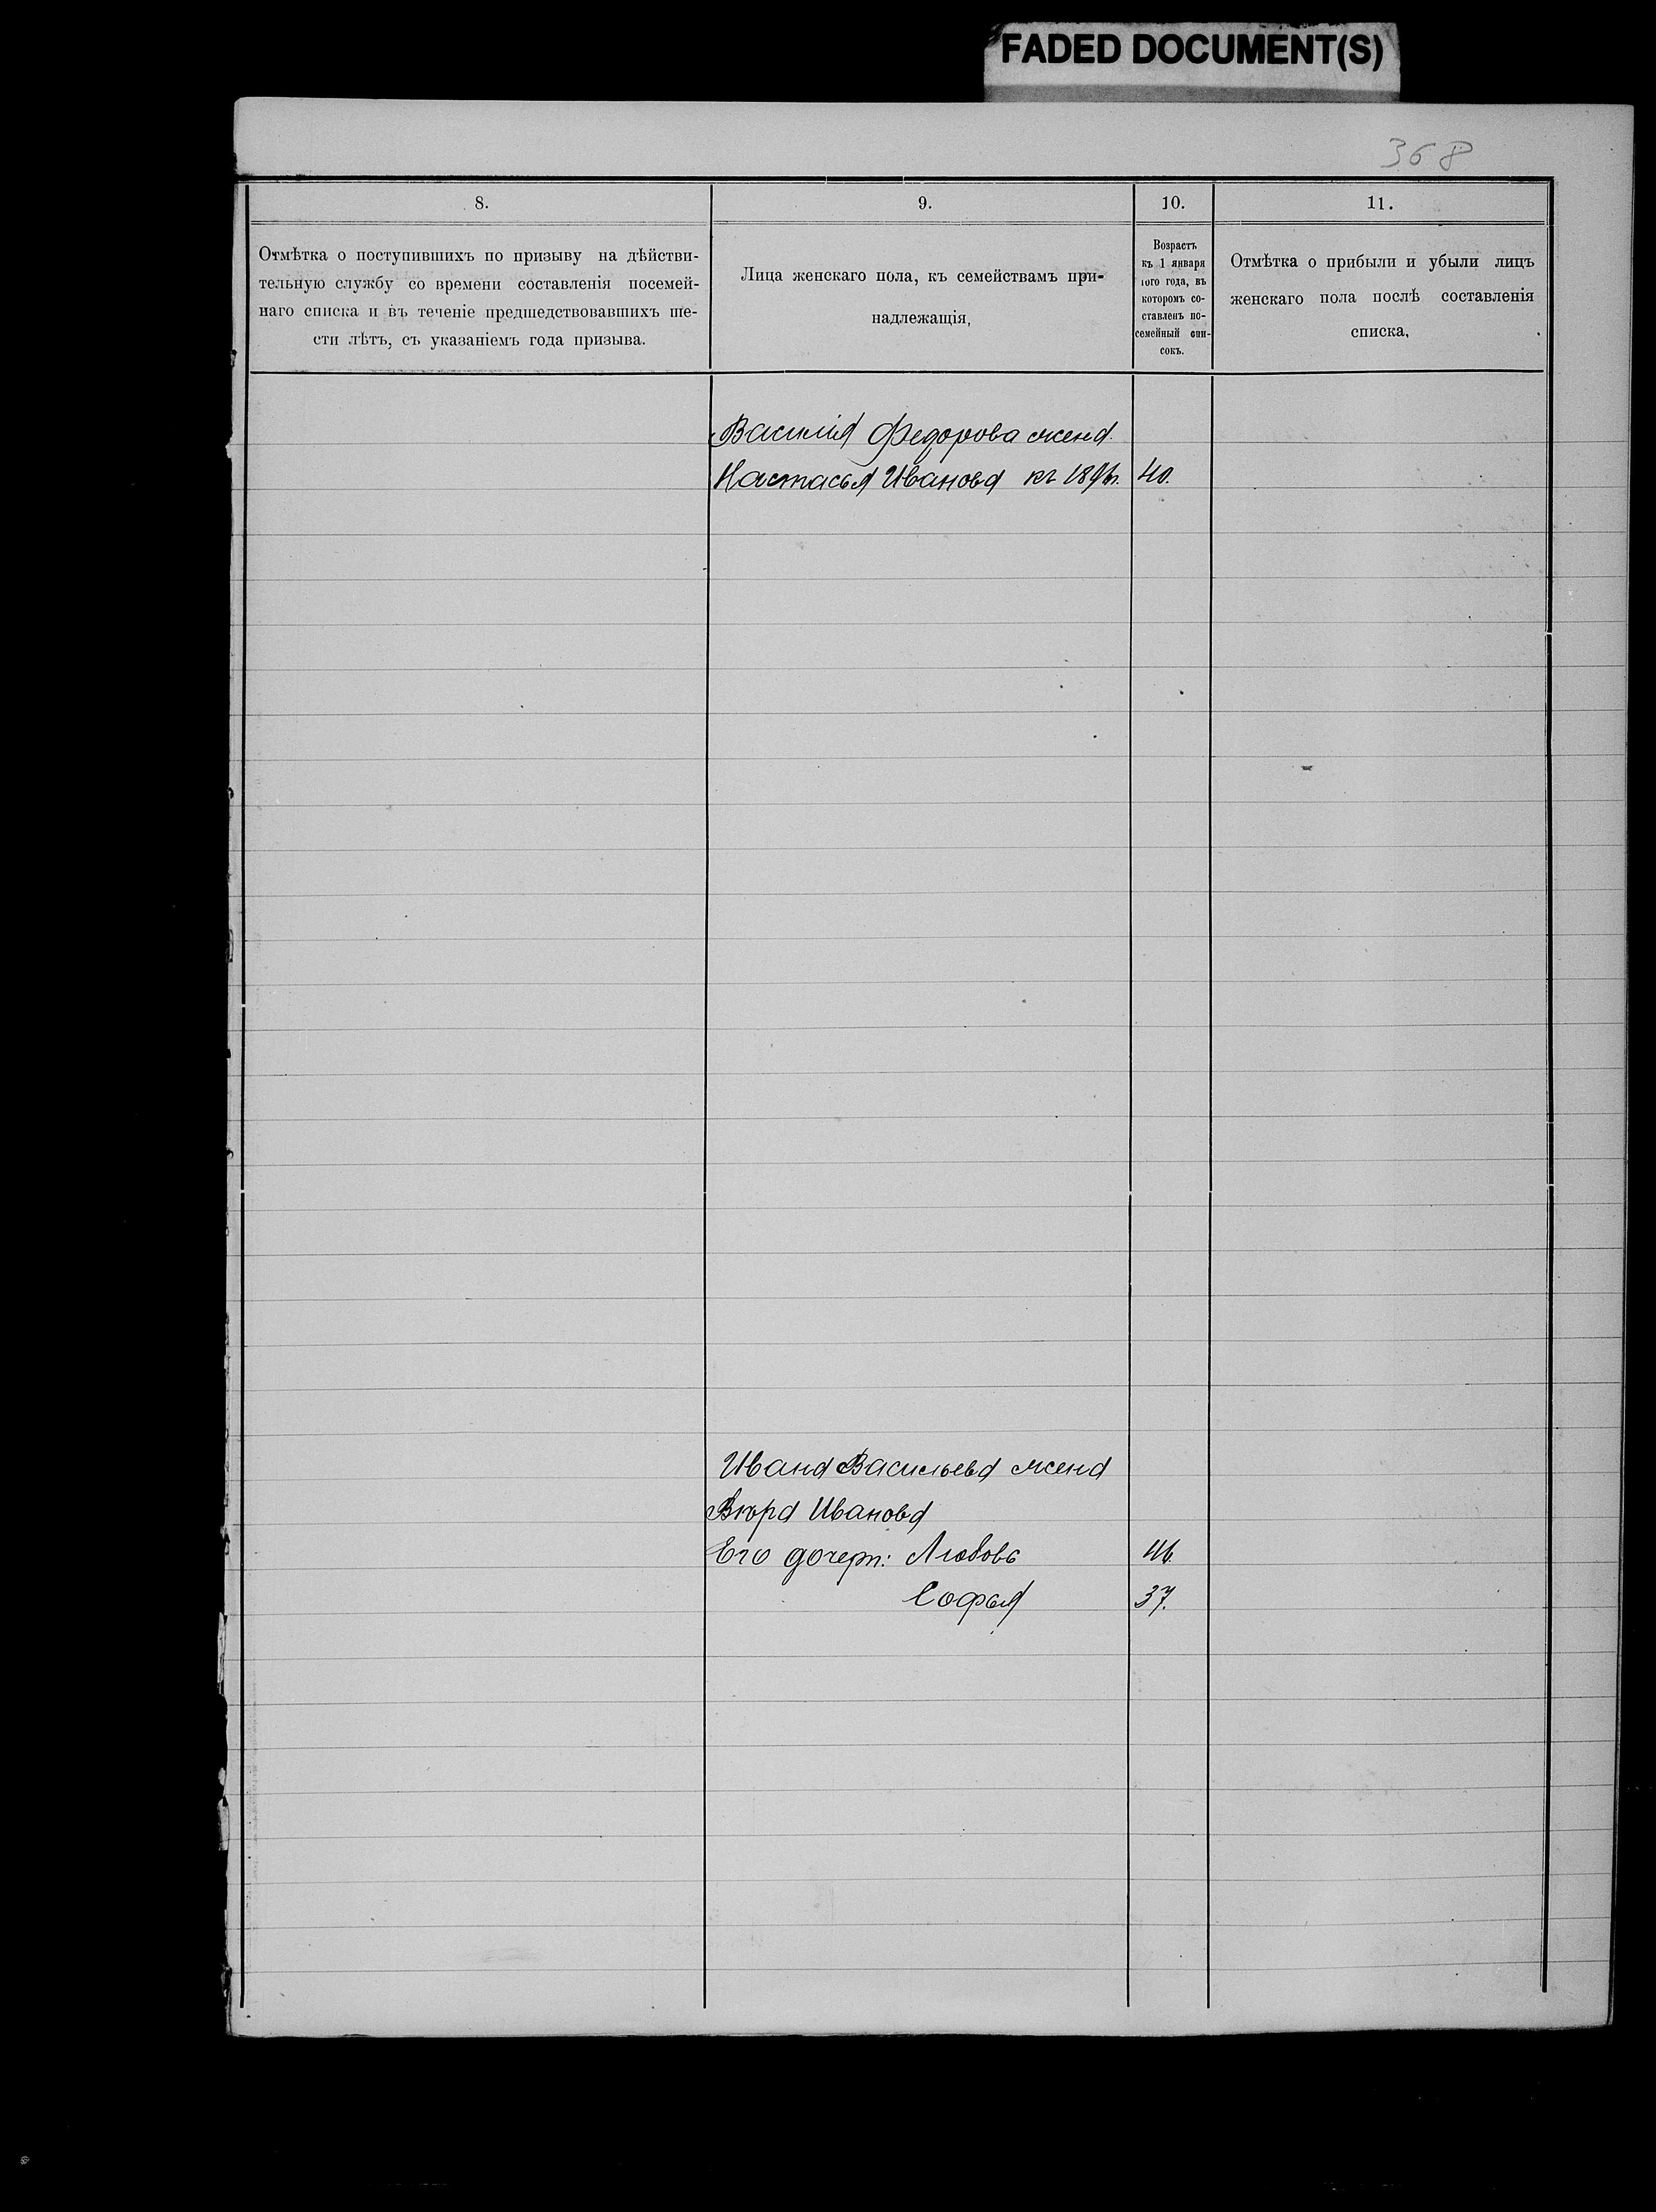 FADED DOCUMENT(S)
368
8.
9.
10.
11.
Отмѣтка о поступившихъ по призыву на дѣйстви-
тельную службу со времени составленія посемей-
наго списка и въ теченіе предшедствовавшихъ ше-
сти лѣтъ, съ указаніемъ года призыва.
Лица женскаго пола, къ семействамъ при-
надлежащія,
Возрастъ
къ 1 января
того года, въ
которомъ со-
ставленъ по-
семейный спи-
сокъ.
Отмѣтка о прибыли и убыли лицъ
женскаго пола послѣ составленія
списка,
Василія Федорова жена
Настасья Иванова къ 40.
Ивана Васильева жена
Иванова
Его дочери: Любовь 46.
Софья 37.